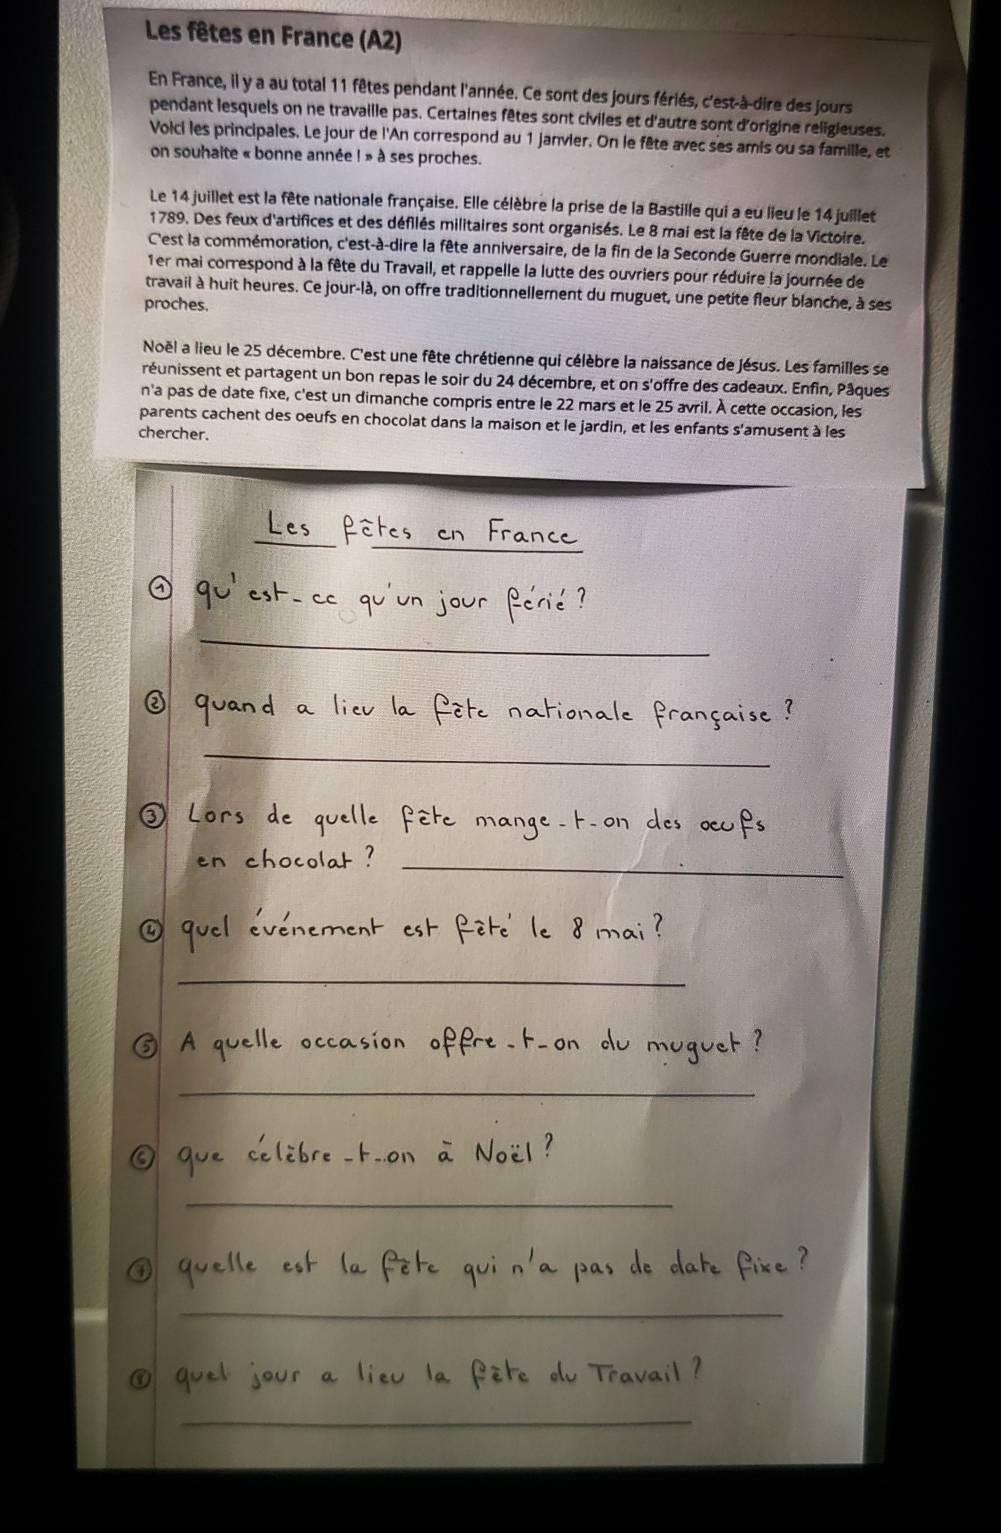 Les fêtes en France (A2)
En France, il y a au total 11 fêtes pendant l'année. Ce sont des jours fériés, c'est-à-dire des jours
pendant lesquels on ne travaille pas. Certaines fêtes sont civiles et d'autre sont d'origine religieuses.
Voici les principales. Le jour de l'An correspond au 1 janvier. On le fête avec ses amis ou sa famille, et
on souhaite « bonne année ! » à ses proches.
Le 14 juillet est la fête nationale française. Elle célèbre la prise de la Bastille qui a eu lieu le 14 juillet
1789. Des feux d'artifices et des défilés militaires sont organisés. Le 8 mai est la fête de la Victoire.
C'est la commémoration, c'est-à-dire la fête anniversaire, de la fin de la Seconde Guerre mondiale. Le
1er mai correspond à la fête du Travail, et rappelle la lutte des ouvriers pour réduire la journée de
travail à huit heures. Ce jour-là, on offre traditionnellement du muguet, une petite fleur blanche, à ses
proches.
Noël a lieu le 25 décembre. C'est une fête chrétienne qui célèbre la naissance de Jésus. Les familles se
réunissent et partagent un bon repas le soir du 24 décembre, et on s'offre des cadeaux. Enfin, Pâques
n'a pas de date fixe, c'est un dimanche compris entre le 22 mars et le 25 avril. À cette occasion, les
parents cachent des oeufs en chocolat dans la maison et le jardin, et les enfants s'amusent à les
chercher.
Les fêtes en France
① qu'est-ce qu'un jour férié?
② quand a lieu la fête nationale française?
③ Lors de quelle fête mange-t-on des oeufs
en chocolat?
④ quel événement est fêté le 8 mai?
⑤ A quelle occasion offre-t-on du muguet?
⑥ que célèbre-t-on à Noël?
⑦ quelle est la fête qui n'a pas de date fixe?
⑧ quel jour a lieu la fête du Travail?